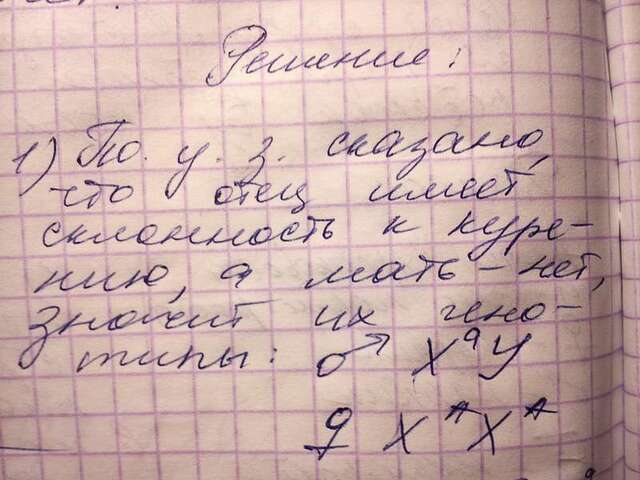 Решение:
1) По. у. з. сказано,
что отец имеет
склонность к куре-
нию, а мать - нет,
значит их гено-
типы: ♂ XᵃY
♀ XᴬXᴬ